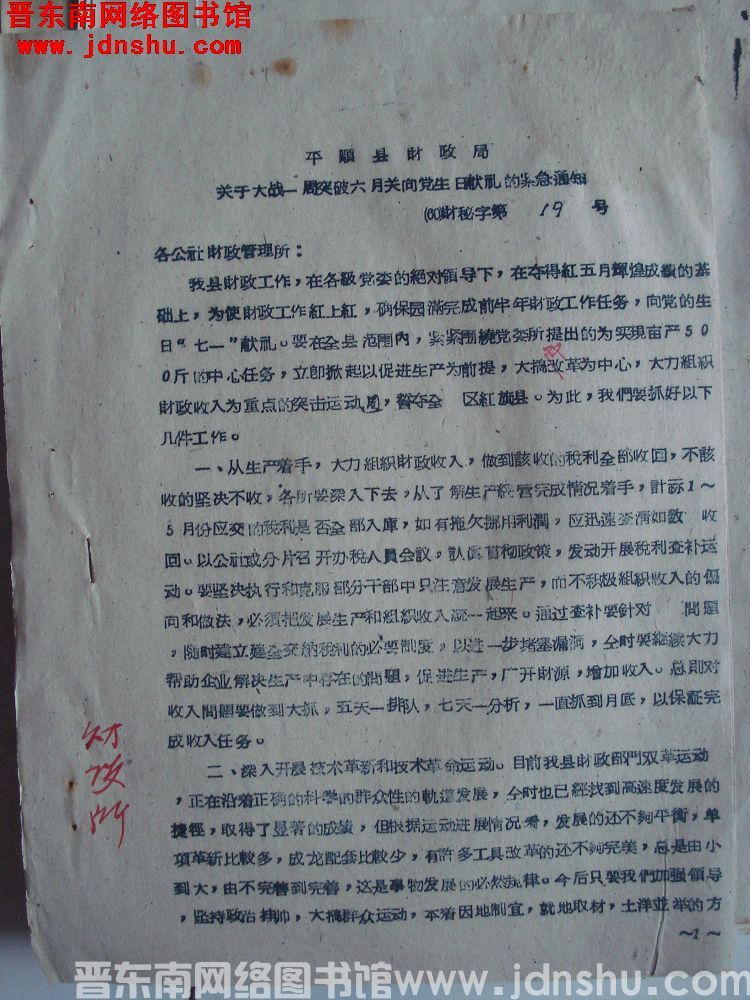 晋东南网络图书馆
www.jdnshu.com
平順县財政局
关于大战一周突破六月关向党生日献礼的紧急通知
(60)財秘字第 19 号
各公社財政管理所：
我县財政工作，在各級党委的絕对領导下，在夺得紅五月輝煌成績的基
础上，为使財政工作紅上紅，确保园滿完成前半年財政工作任务，向党的生
日“七一”献礼。要在全县范围內，紧紧围繞党委所提出的为实現亩产50
0斤的中心任务，立即掀起以促进生产为前提，大搞双改革为中心，大力組織
財政收入为重点的突击运动周，誓夺全 区紅旗县。为此，我們要抓好以下
几件工作。
一、从生产着手，大力組織財政收入，做到該收的稅利全部收回，不該
收的坚决不收，各所要深入下去，从了解生产經营完成情况着手，計 1～
5月份应交的稅利是否全部入庫，如有拖欠挪用利潤，应迅速查清如数 收
回。以公社或分片召开办稅人員会議，認真貫彻政策，发动开展稅利查补运
动。要坚决执行和克服部分干部中只注意发展生产，而不积极組織收入的傾
向和做法，必須把发展生产和組織收入統一起来。通过查补要針对 問題
，随时建立建全交納稅利的必要制度，以进一步堵塞漏洞，仝时要継续大力
帮助企业解决生产中存在的問題，促进生产，广开財源，增加收入。总則对
收入問題要做到大抓，五天一排队，七天一分析，一直抓到月底，以保証完
成收入任务。
二、深入开展技术革新和技术革命运动。目前我县財政部門双革运动
，正在沿着正确的科学的群众性的軌道发展，仝时也已經找到高速度发展的
捷徑，取得了显著的成績，但根据运动进展情况看，发展的还不夠平衡，单
項革新比較多，成龙配套比較少，有許多工具改革的还不夠完美，总是由小
到大，由不完善到完善，这是事物发展的必然規律。今后只要我們加强領导
，坚持政治挂帅，大搞群众运动，本着因地制宜，就地取材，土洋並举的方
～1～
財政所
晋东南网络图书馆www.jdnshu.com